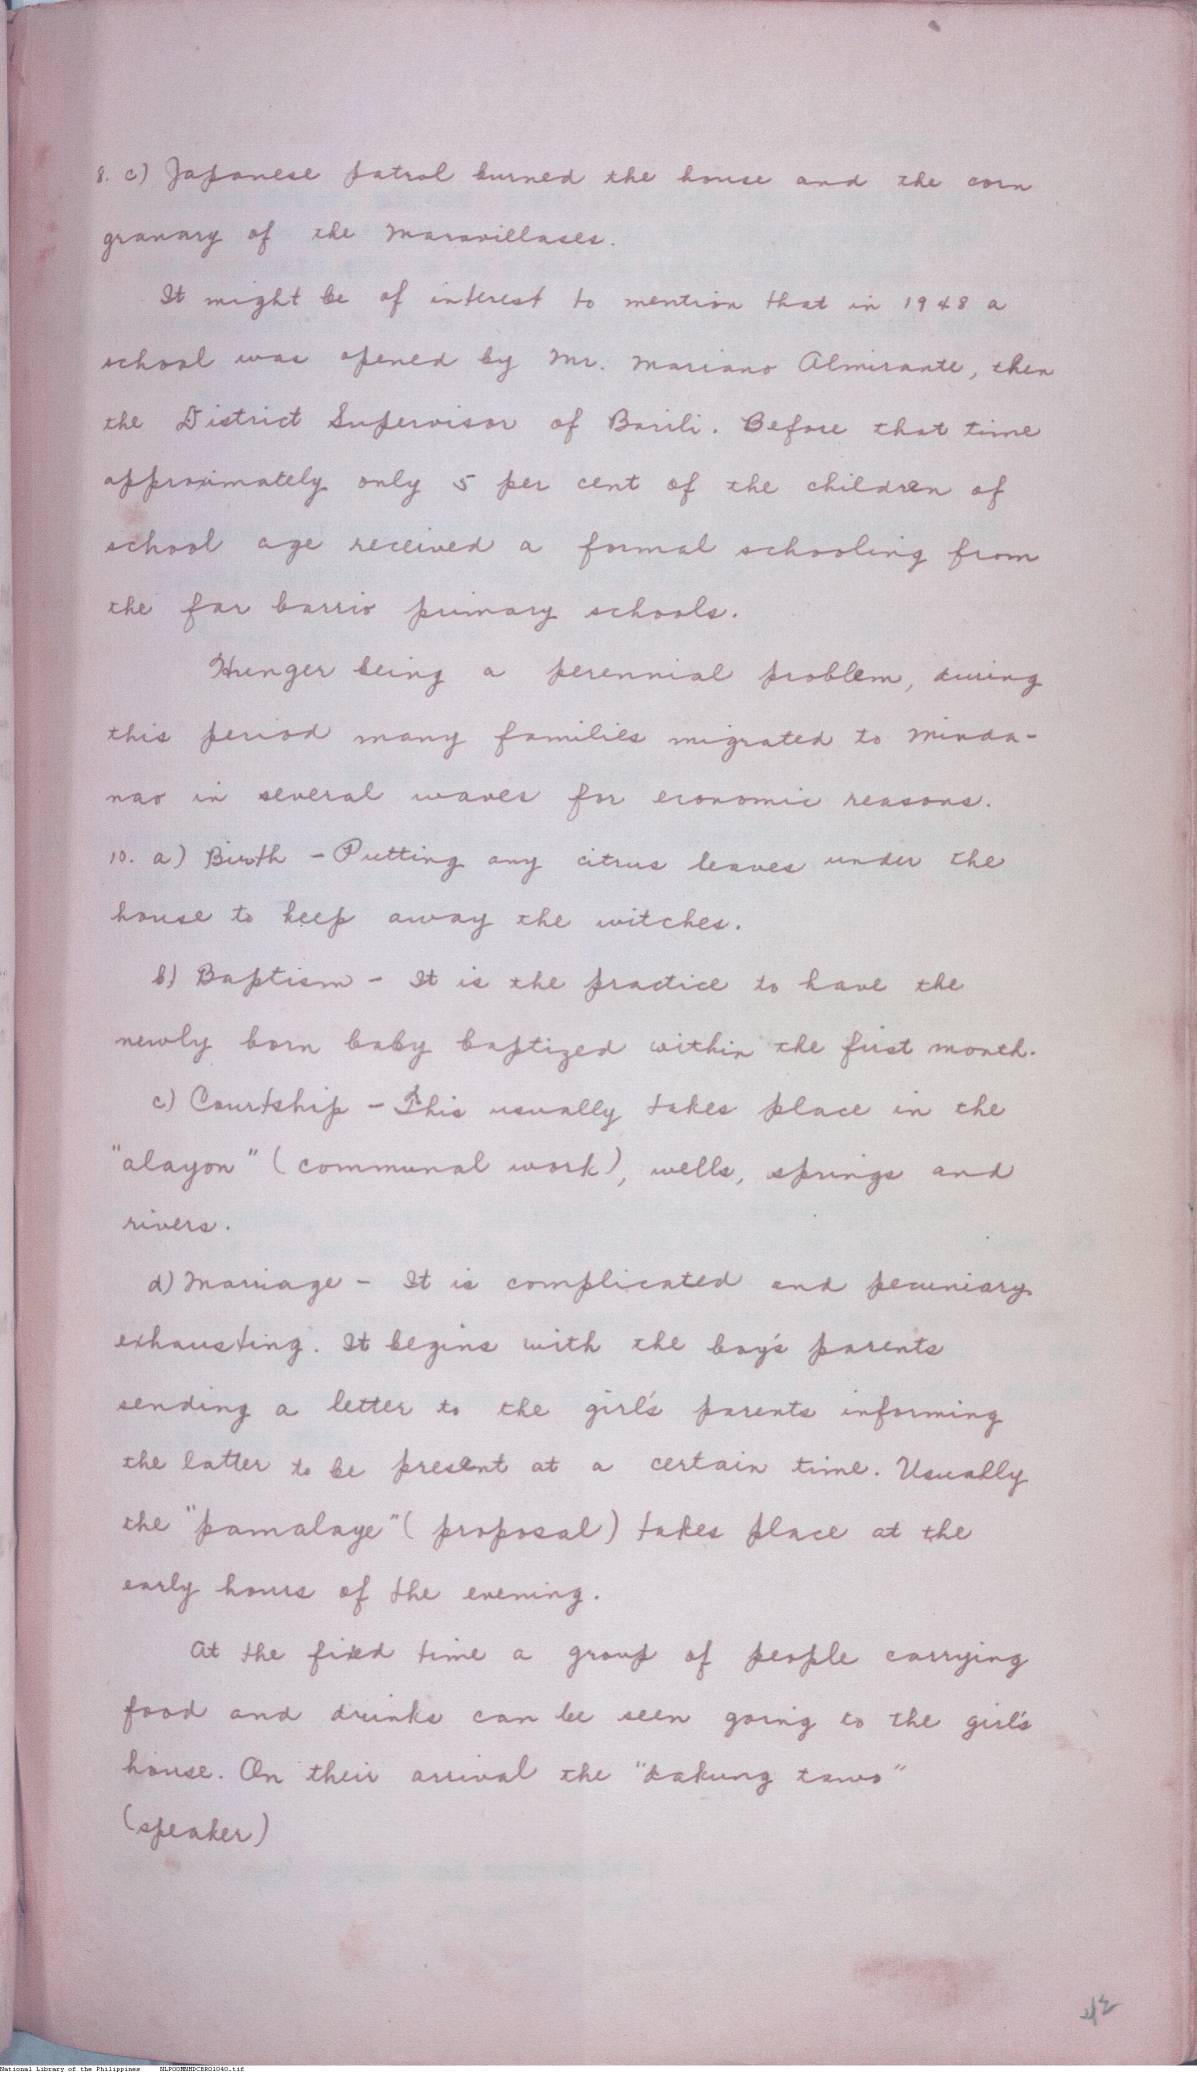 8. c) Japanese patrol burned the house and the corn
granary of the Maravillases.
It might be of interest to mention that in 1948 a
school was opened by Mr. Mariano Almirante, then
the District Supervisor of Barili. Before that time
approximately only 5 per cent of the children of
school age received a formal schooling from
the far barrio primary schools.
Hunger being a perennial problem, during
this period many families migrated to Minda-
nao in several waves for economic reasons.
10. a) Birth - Putting any citrus leaves under the
house to keep away the witches.
b) Baptism - It is the practice to have the
newly born baby baptized within the first month.
c) Courtship - This usually takes place in the
"alayon" (communal work), wells, springs and
rivers.
d) Marriage - It is complicated and pecuniary
exhausting. It begins with the boy's parents
sending a letter to the girl's parents informing
the latter to be present at a certain time. Usually
the "pamalaye" (proposal) takes place at the
early hours of the evening.
At the fixed time a group of people carrying
food and drinks can be seen going to the girl's
house. On their arrival the "dakung tawo"
(speaker)
National Library of the Philippines NLPOOMNHDCBRO1040.tif